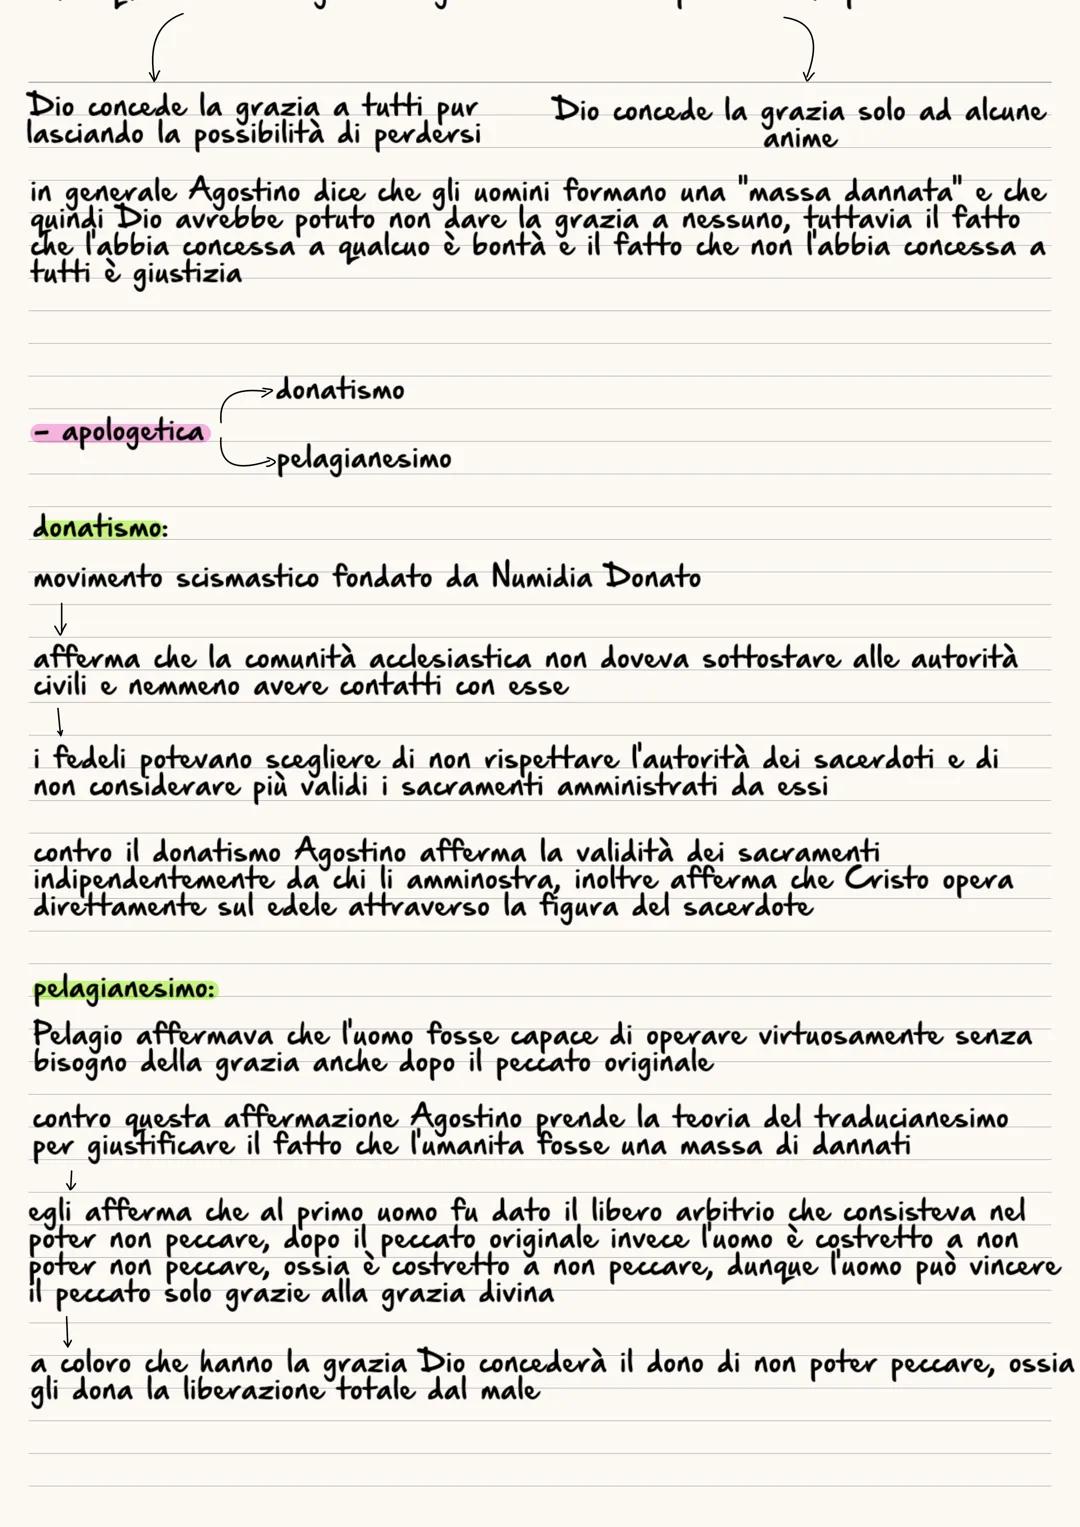 Dio concede la grazia a tutti pur
lasciando la possibilità di perdersi
Dio concede la grazia solo ad alcune
anime
in generale Agostino dice che gli uomini formano una "massa dannata" e che
quindi Dio avrebbe potuto non dare la grazia a nessuno, tuttavia il fatto
che l'abbia concessa a qualcuo è bontà e il fatto che non l'abbia concessa a
tutti è giustizia
donatismo
- apologetica
pelagianesimo
donatismo:
movimento scismastico fondato da Numidia Donato
afferma che la comunità acclesiastica non doveva sottostare alle autorità
civili e nemmeno avere contatti con esse
i fedeli potevano scegliere di non rispettare l'autorità dei sacerdoti e di
non considerare più validi i sacramenti amministrati da essi
contro il donatismo Agostino afferma la validità dei sacramenti
indipendentemente da chi li amminostra, inoltre afferma che Cristo opera
direttamente sul edele attraverso la figura del sacerdote
pelagianesimo:
Pelagio affermava che l'uomo fosse capace di operare virtuosamente senza
bisogno della grazia anche dopo il peccato originale
contro questa affermazione Agostino prende la teoria del traducianesimo
per giustificare il fatto che l'umanita fosse una massa di dannati
egli afferma che al primo uomo fu dato il libero arbitrio che consisteva nel
poter non peccare, dopo il peccato originale invece l'uomo è costretto a non
poter non peccare, ossia è costretto a non peccare, dunque l'uomo può vincere
il peccato solo grazie alla grazia divina
a coloro che hanno la grazia Dio concederà il dono di non poter peccare, ossia
gli dona la liberazione totale dal male